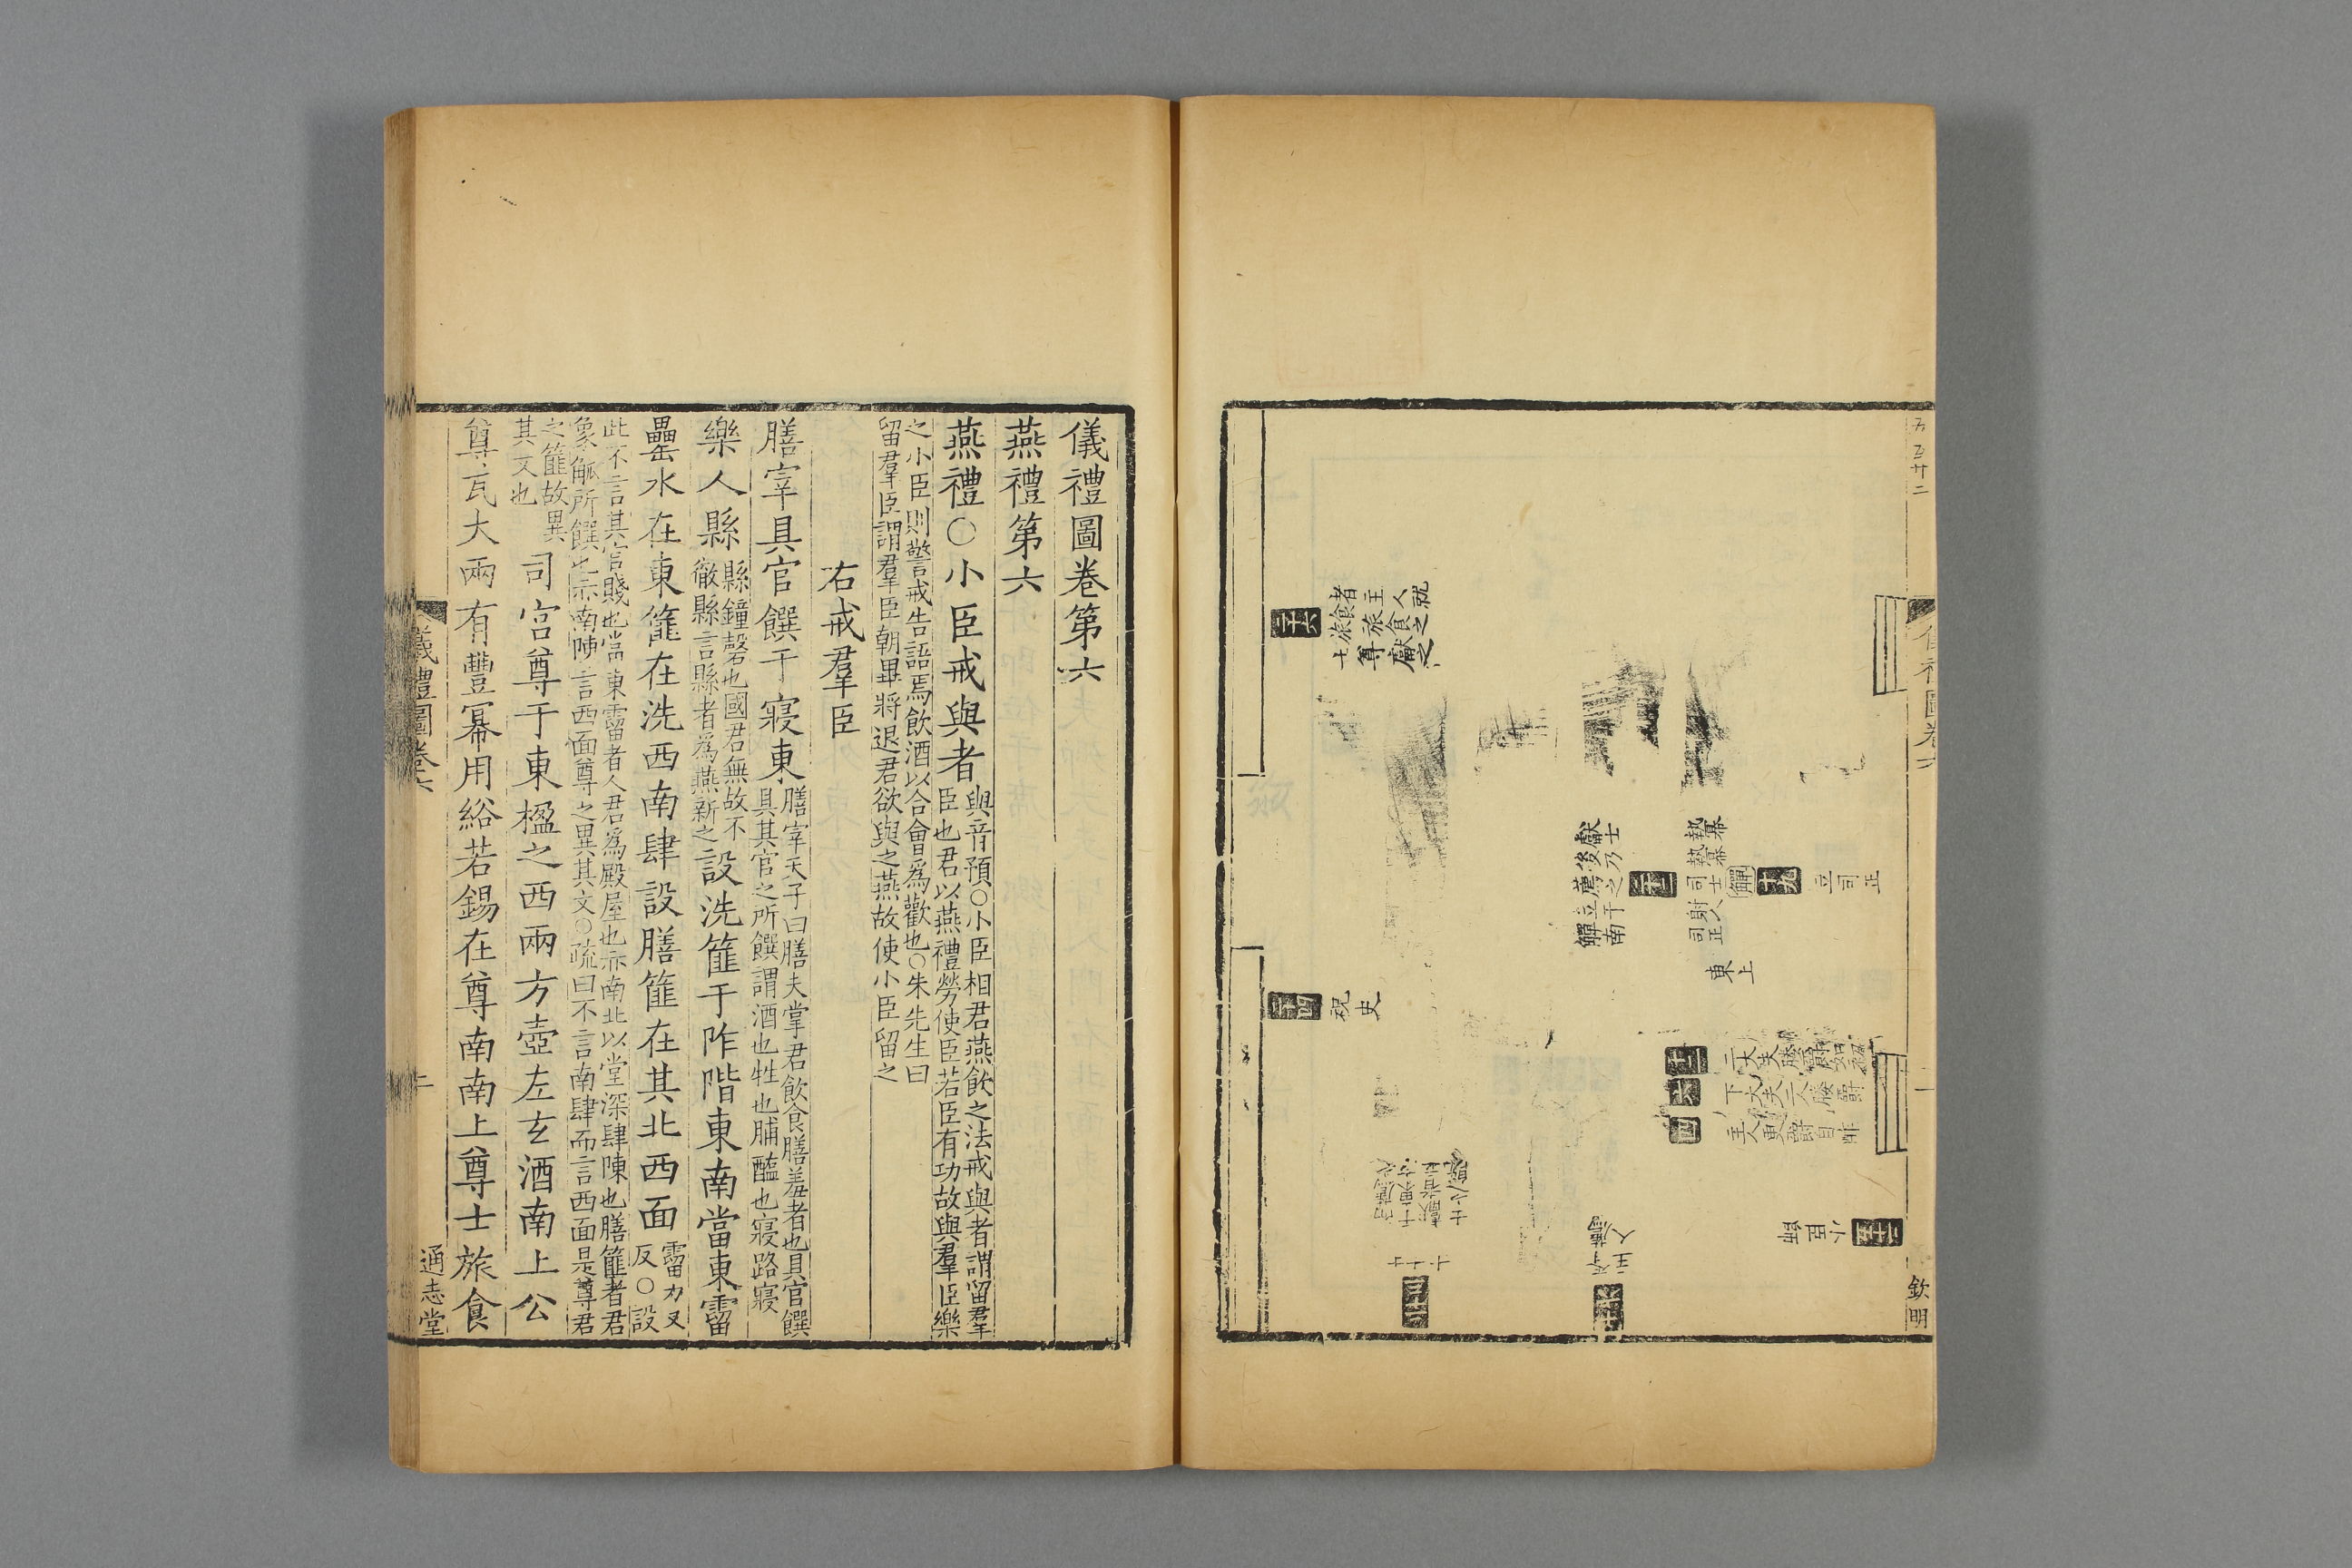 五百廿二
欽明
士旅食者
尊旅食主
獻之人就之
祝史
獻士
後乃
薦之
立于
觶南
執冪
執冪
司士
射人
司正
觶
東上
司正
立
二大夫媵爵如初
下大夫二人媵爵
主人更爵自酢
小臣師
儀禮圖卷第六
燕禮第六
燕禮○小臣戒與者與音預○小臣相君燕飲之法戒與者謂留羣
臣也君以燕禮勞使臣若臣有功故與羣臣樂
之小臣則警戒告語焉飲酒以合會爲歡也○朱先生曰
留羣臣謂羣臣朝畢將退君欲與之燕故使小臣留之
右戒羣臣
膳宰具官饌于寢東膳宰天子曰膳夫掌君飲食膳羞者也具官饌
具其官之所饌謂酒也牲也脯醢也寢路寢
樂人縣縣鐘磬也國君無故不
徹縣言縣者爲燕新之設洗篚于阼階東南當東霤
罍水在東篚在洗西南肆設膳篚在其北西面霤力又
反○設
此不言其官賤也當東霤者人君爲殿屋也亦南北以堂深肆陳也膳篚者君
象觚所饌也亦南陳言西面尊之異其文○疏曰不言南肆而言西面是尊君
之篚故異
其文也司宮尊于東楹之西兩方壺左玄酒南上公
尊瓦大兩有豐冪用綌若錫在尊南南上尊士旅食
儀禮圖卷六
通志堂